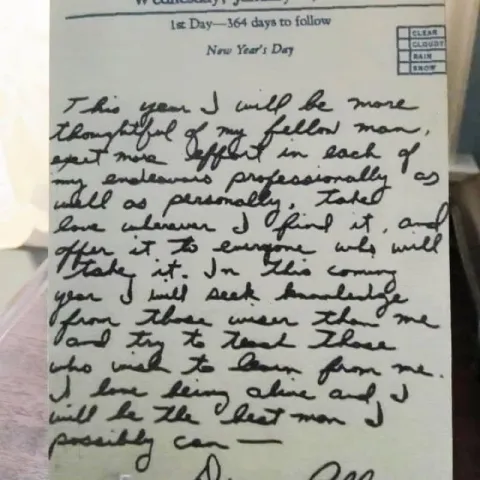 Wednesday, January
1st Day—364 days to follow
New Year's Day
CLEAR
CLOUDY
RAIN
SNOW
This year I will be more
thoughtful of my fellow man,
exert more effort in each of
my endeavors professionally as
well as personally, take
love wherever I find it, and
offer it to everyone who will
take it. In this coming
year I will seek knowledge
from those wiser than me
and try to teach those
who wish to learn from me.
I love being alive and I
will be the best man I
possibly can —